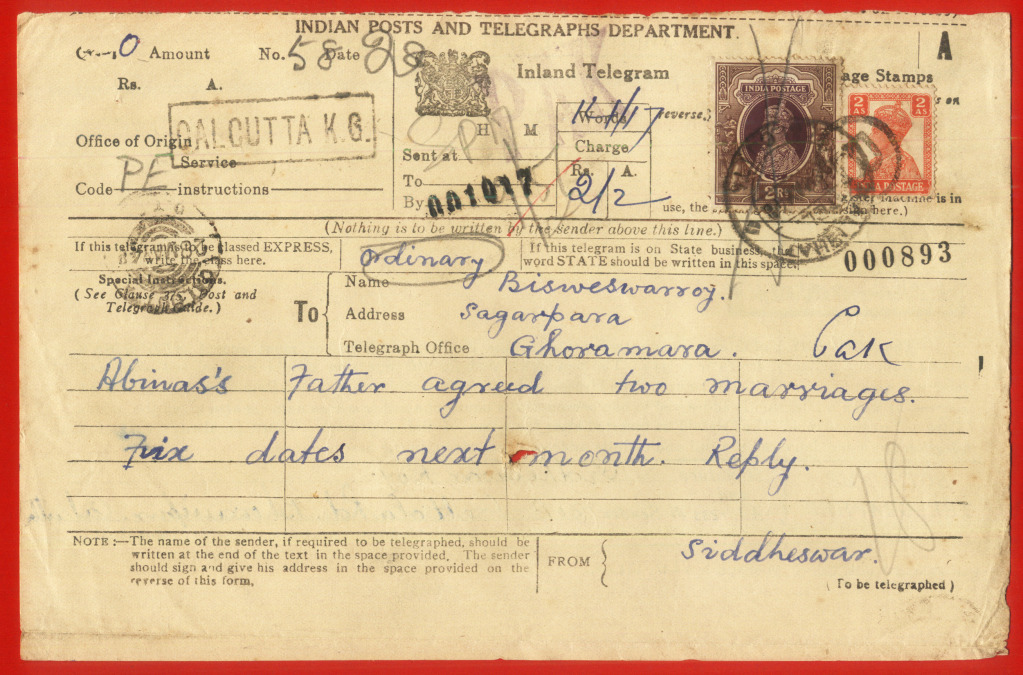 INDIAN POSTS AND TELEGRAPHS DEPARTMENT.
0 Amount No. 58 Date 28
A
Rs. A.
Inland Telegram
age Stamps
CALCUTTA K.G.
Office of Origin
Service
Code PE instructions
H M
Sent at
To
By
001017
Words
Charge
Rs. A.
2/2
reverse.)
s on
INDIA POSTAGE
2 RS
2 AS 2 AS
POSTAGE
use, the
machine is in
here.)
(Nothing is to be written by the sender above this line.)
If this telegram is to be classed EXPRESS,
write the class here.
ordinary
If this telegram is on State business, the
word STATE should be written in this space.
000893
Special Instructions.
(See Clause 373, Post and
Telegraph Guide.)
To
Name Bisweswarroy.
Address Sagarpara
Telegraph Office Ghoramara. Pak
Abinas's Father agreed two marriages.
Fix dates next month. Reply.
18
NOTE :—The name of the sender, if required to be telegraphed, should be
written at the end of the text in the space provided. The sender
should sign and give his address in the space provided on the
reverse of this form.
FROM
Siddheswar.
(To be telegraphed)